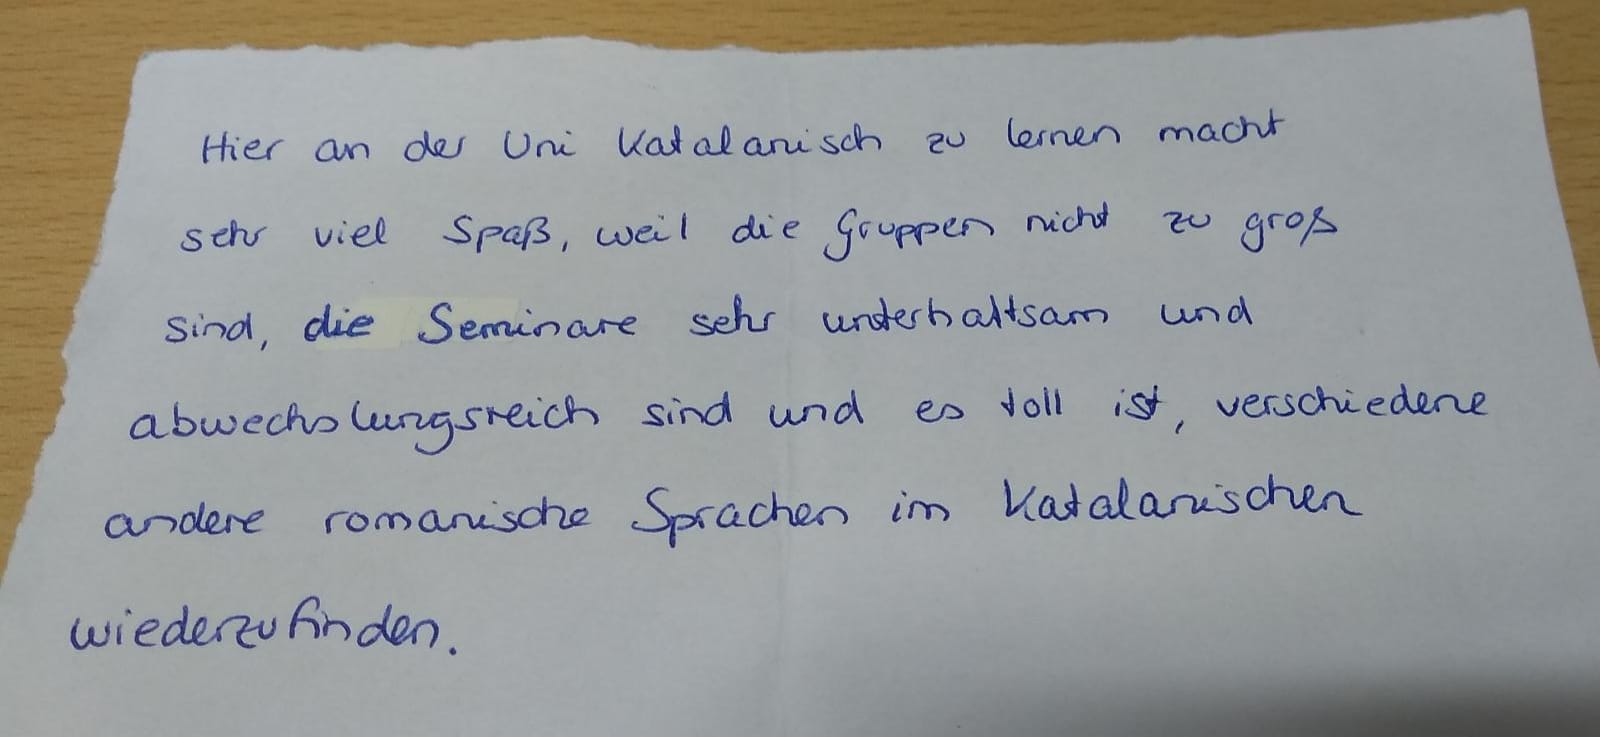 Hier an der Uni Katalanisch zu lernen macht
sehr viel Spaß, weil die Gruppen nicht zu groß
sind, die Seminare sehr unterhaltsam und
abwechslungsreich sind und es toll ist, verschiedene
andere romanische Sprachen im Katalanischen
wiederzufinden.